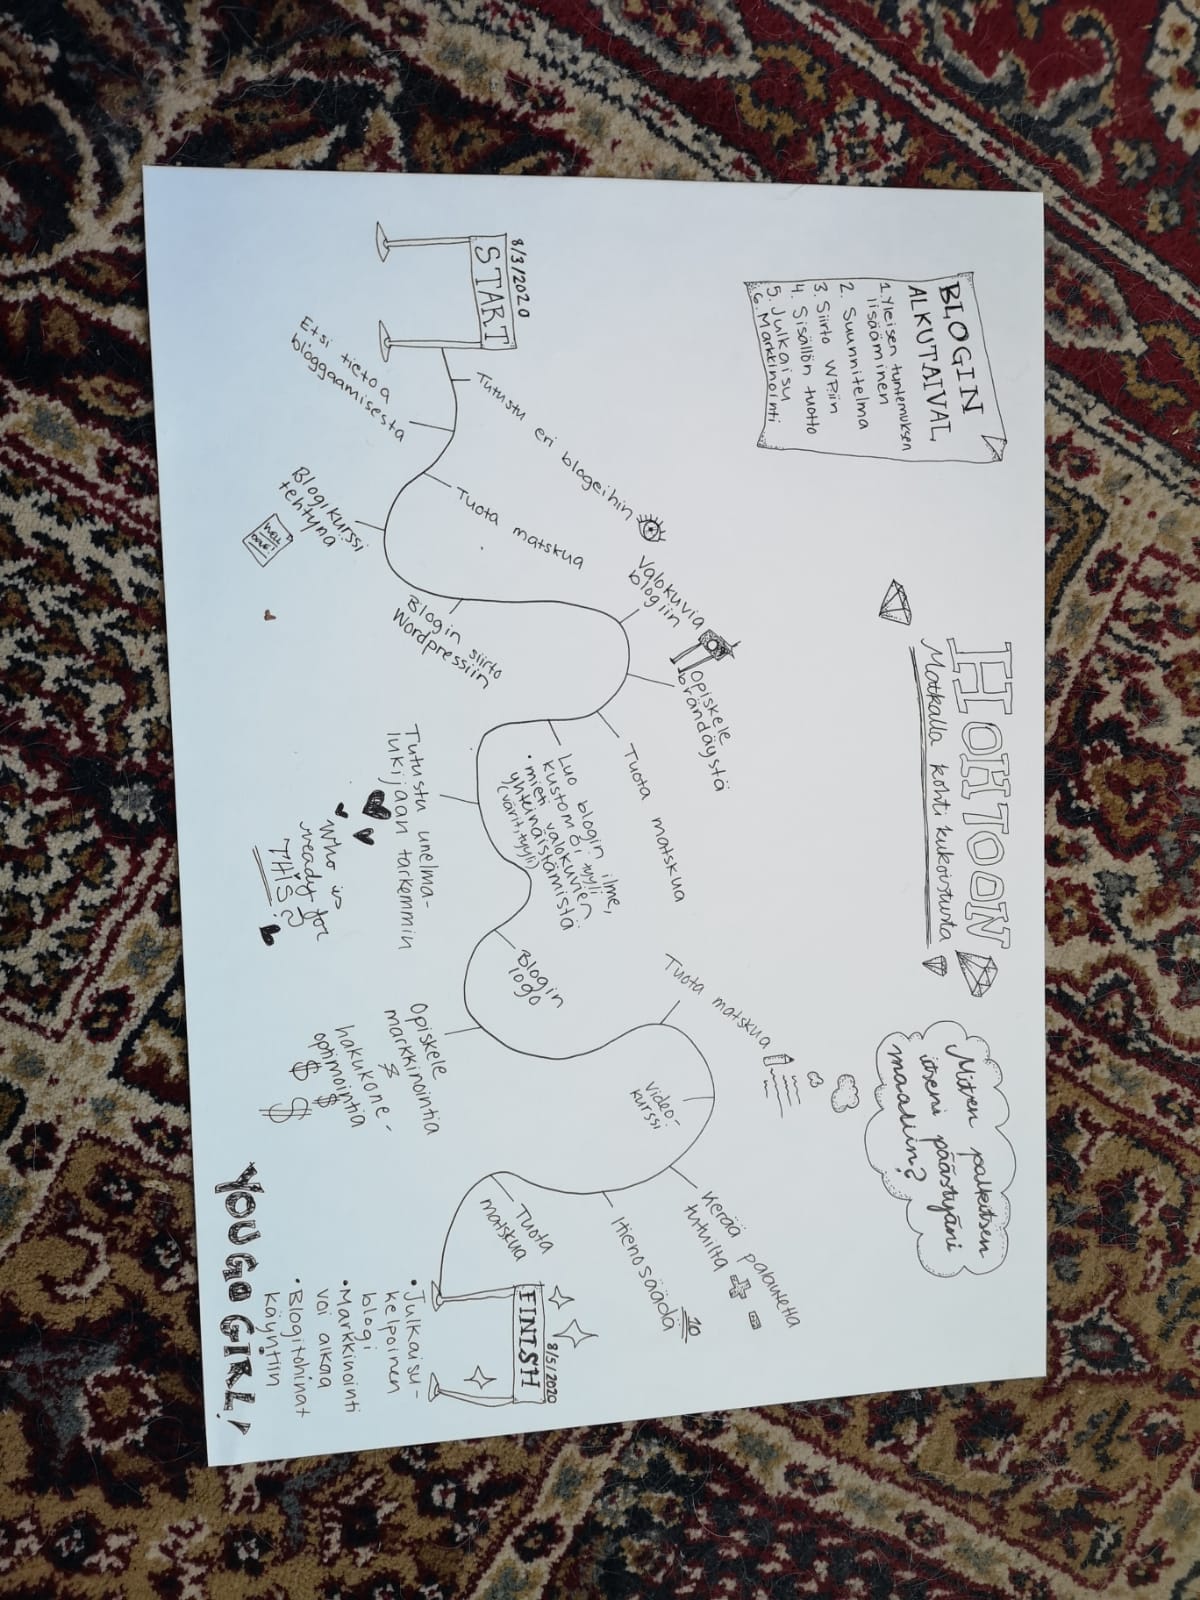 HOHTOON
Matkalla kohti kukoistusta
BLOGIN
ALKUTAIVAL
1. Yleisen tuntemuksen
lisääminen
2. Suunnitelma
3. Siirto WP:iin
4. Sisällön tuotto
5. Julkaisu
6. Markkinointi
Miten palkitsen
itseni päästyäni
maaliin?
8/3/2020
START
Tutustu eri blogeihin
Etsi tietoa
bloggaamisesta
Tuota matskua
Blogikurssi
tehtynä
WELL
DONE!
Valokuvia
blogiin
Blogin siirto
Wordpressiin
Opiskele
brändäystä
Tuota matskua
Luo blogin ilme,
kustomoi tyyli
• mieti valokuvien
yhteinäistämistä
(värit, tyyli)
Tutustu unelma-
lukijaan tarkemmin
Who is
ready for
THIS?
Blogin
logo
Opiskele
markkinointia
&
hakukone-
optimointia
$ $ $
Tuota matskua
Video-
kurssi
Kerää palautetta
tutuilta + -
Hienosäädä
10
Tuota
matskua
8/5/2020
FINISH
• Julkaisu-
kelpoinen
blogi
• Markkinointi
voi alkaa
• Blogitohinat
käyntiin
YOU GO GIRL!